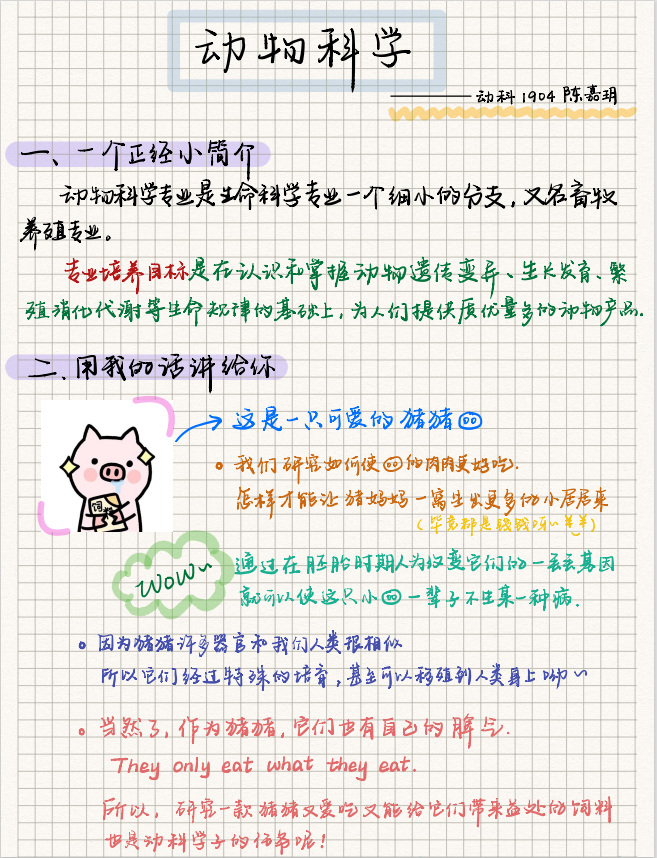 动物科学
——动科1904 陈嘉玥
一、一个正经小简介
动物科学专业是生命科学专业一个细小的分支，又名畜牧
养殖专业。
专业培养目标是在认识和掌握动物遗传变异、生长发育、繁
殖消化代谢等生命规律的基础上，为人们提供质优量多的动物产品.
二、用我的话讲给你
这是一只可爱的猪猪
我们研究如何使的肉肉更好吃.
怎样才能让猪妈妈一窝生出更多的小屁屁来
(毕竟都是钱钱呀~¥¥)
饲料
wow~
通过在胚胎时期人为改变它们的一丢丢基因
就可以使这只小一辈子不生某一种病.
因为猪猪许多器官和我们人类很相似
所以它们经过特殊的培育，甚至可以移殖到人类身上呦~
当然了，作为猪猪，它们也有自己的脾气.
They only eat what they eat.
所以，研究一款猪猪又爱吃又能给它们带来益处的饲料
也是动科学子的任务呢！